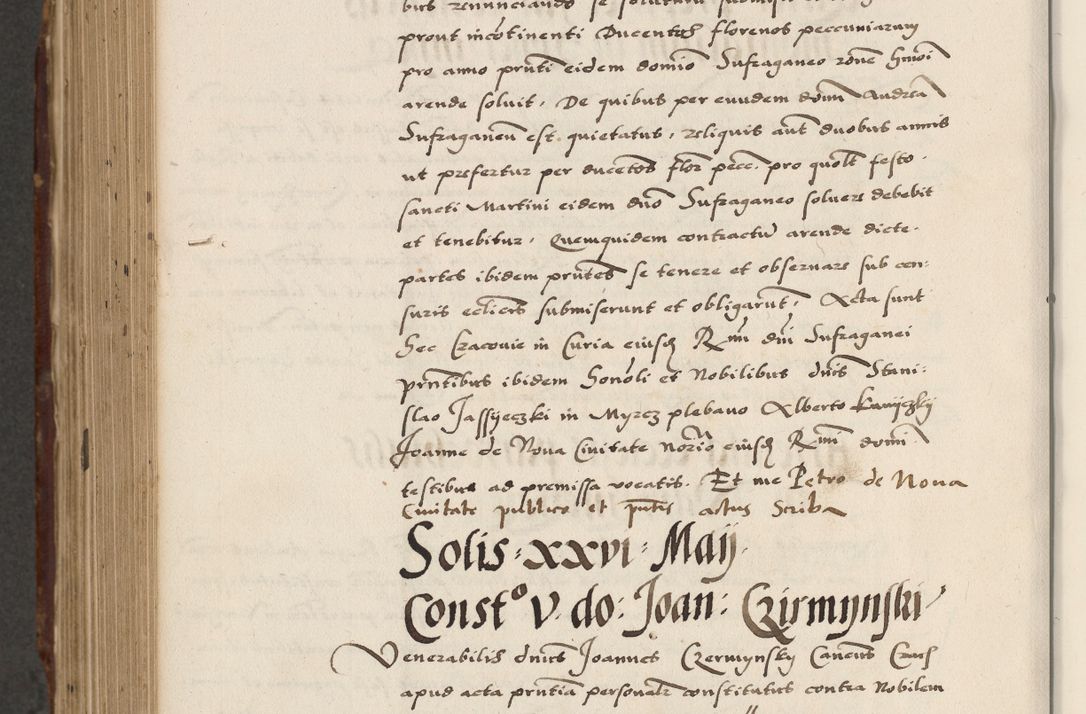 prout incontinenti Ducentos florenos peccuniarum
pro anno prnti eidem domio Suffraganeo rone hmoi
arende soluit. De quibus per eundem domi Andrea
Suffraganeu est quietatus, reliquis aut duobus annis
ut prefertur per ducetos flor pecc. pro quolt festo
sancti Martini eidem dno Suffraganeo soluere debebit
et tenebitur. Quemquidem contractu arende dicte
partes ibidem prntes se tenere et obseruare sub cen:
suris ecclicis submiserunt et obligarut. Acta sunt
hec Cracouie in Curia eiusd Rmi dni Suffraganei
prntibus ibidem honoli et Nobilibus dnis Stani:
slao Jassyeczki in Myrcz plebano Alberto
Joanne de Noua Ciuitate norio eiusd Rmi domi
testibus ad premissa vocatis. Et me Petro de Noua
Ciuitate publico et pntis actus Scriba
Solis · xxvi · Maij ·
Const° v. do: Joan: Czirmynski
Venerabilis dnus Joannes Czermynsky Cancus Crac
apud acta prntia personalr constitutus contra Nobilem